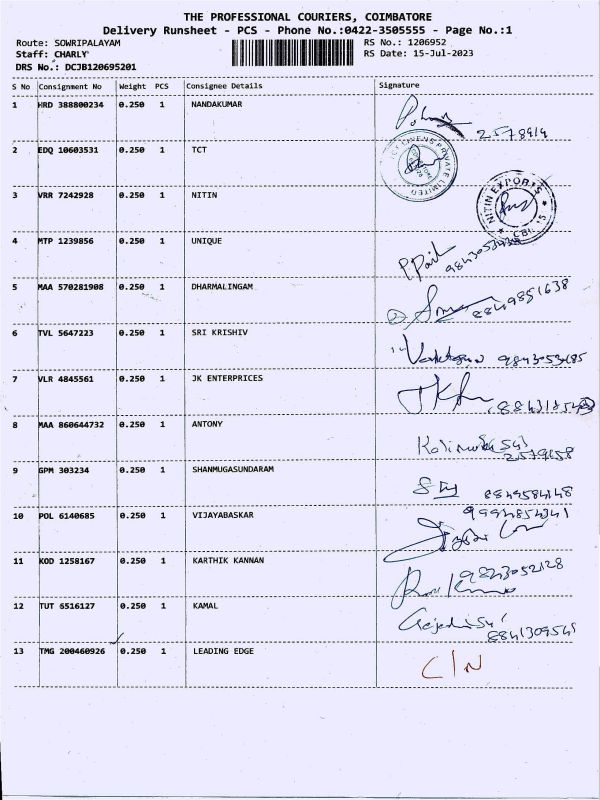 THE PROFESSIONAL COURIERS, COIMBATORE
Delivery Runsheet - PCS - Phone No.:0422-3505555 - Page No.:1
Route: SOWRIPALAYAM RS No.: 1206952
Staff: CHARLY RS Date: 15-Jul-2023
DRS No.: DCJB120695201
S No Consignment No Weight PCS Consignee Details Signature
1 HRD 388800234 0.250 1 NANDAKUMAR
2578919
2 EDQ 10603531 0.250 1 TCT
PRIVATE LIMITED
3 VRR 7242928 0.250 1 NITIN
NITIN EXPORTS
4 MTP 1239856 0.250 1 UNIQUE
5 MAA 570281908 0.250 1 DHARMALINGAM
8849851638
6 TVL 5647223 0.250 1 SRI KRISHIV
7 VLR 4845561 0.250 1 JK ENTERPRICES
8 MAA 860644732 0.250 1 ANTONY
9 GPM 303234 0.250 1 SHANMUGASUNDARAM
10 POL 6140685 0.250 1 VIJAYABASKAR
11 KOD 1258167 0.250 1 KARTHIK KANNAN
9843052128
12 TUT 6516127 0.250 1 KAMAL
8841309541
13 TMG 200460926 0.250 1 LEADING EDGE
C/N